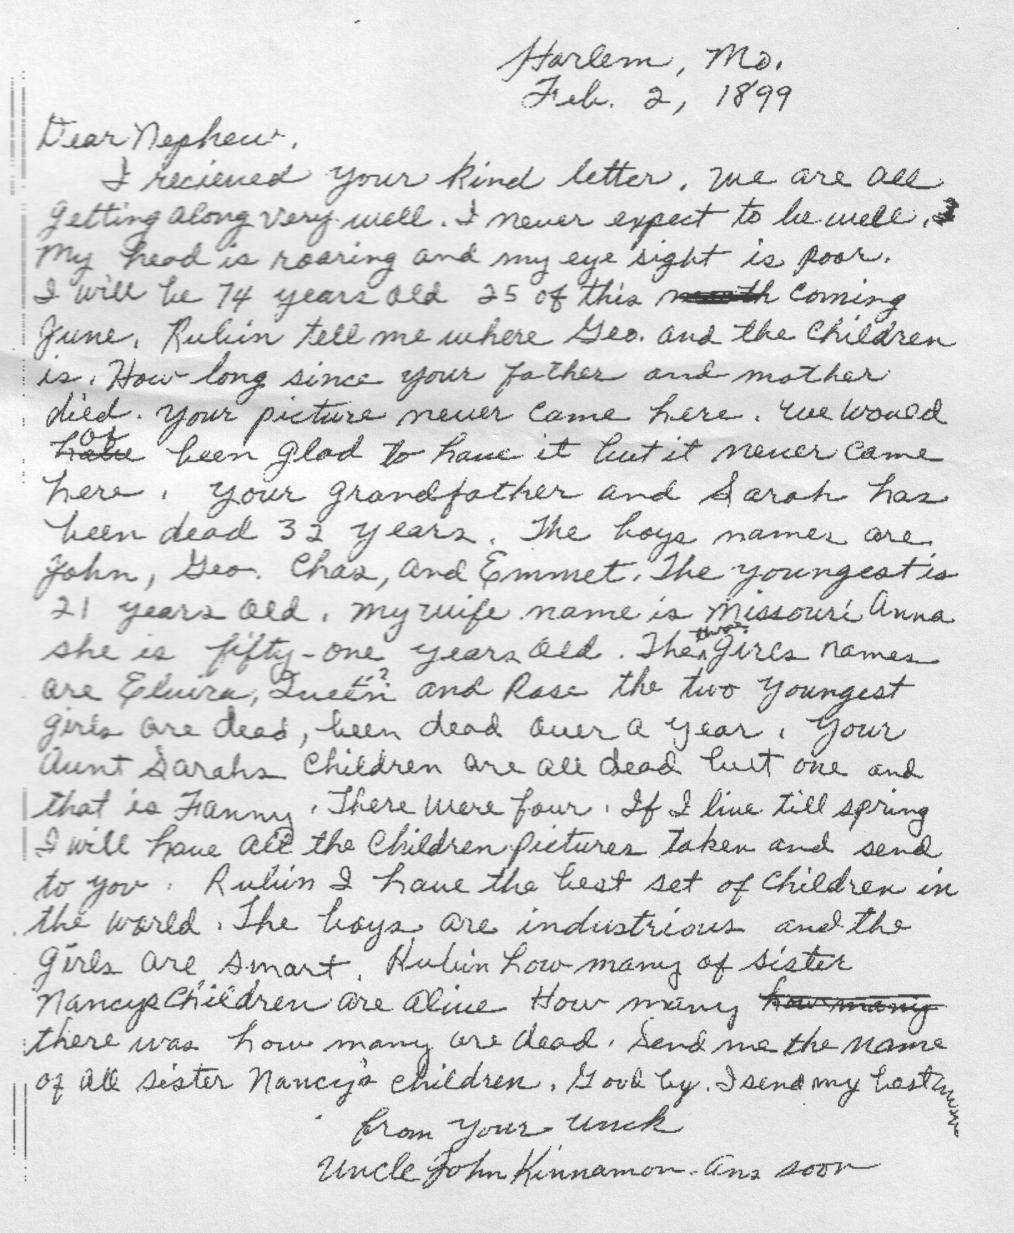 Harlem, Mo.
Feb. 2, 1899
Dear Nephew.
I recieved your kind letter. We are all
getting along very well. I never expect to be well.
My head is roaring and my eye sight is poor.
I will be 74 years old 25 of this month coming
June. Rubin tell me where Geo. and the children
is. How long since your father and mother
died. Your picture never came here. We would
of
have been glad to have it but it never came
here. Your grandfather and Sarah has
been dead 32 years. The boys names are
John, Geo. Chas, and Emmet. The youngest is
21 years old. My wife name is Missouri Anna
she is fifty-one years old. The three girls names
are Elvira, and Rose the two youngest
girls are dead, been dead over a year. Your
Aunt Sarahs children are all dead but one and
that is Fanny. There were four. If I live till spring
I will have all the children pictures taken and send
to you. Rubin I have the best set of children in
the world. The boys are industrious and the
girls are smart. Rubin how many of sister
Nancys children are alive How many how many
there was how many are dead. Send me the name
of all sister Nancy's children. Good by. I send my best
from your unck
Uncle John Kinnamon. Ans soon